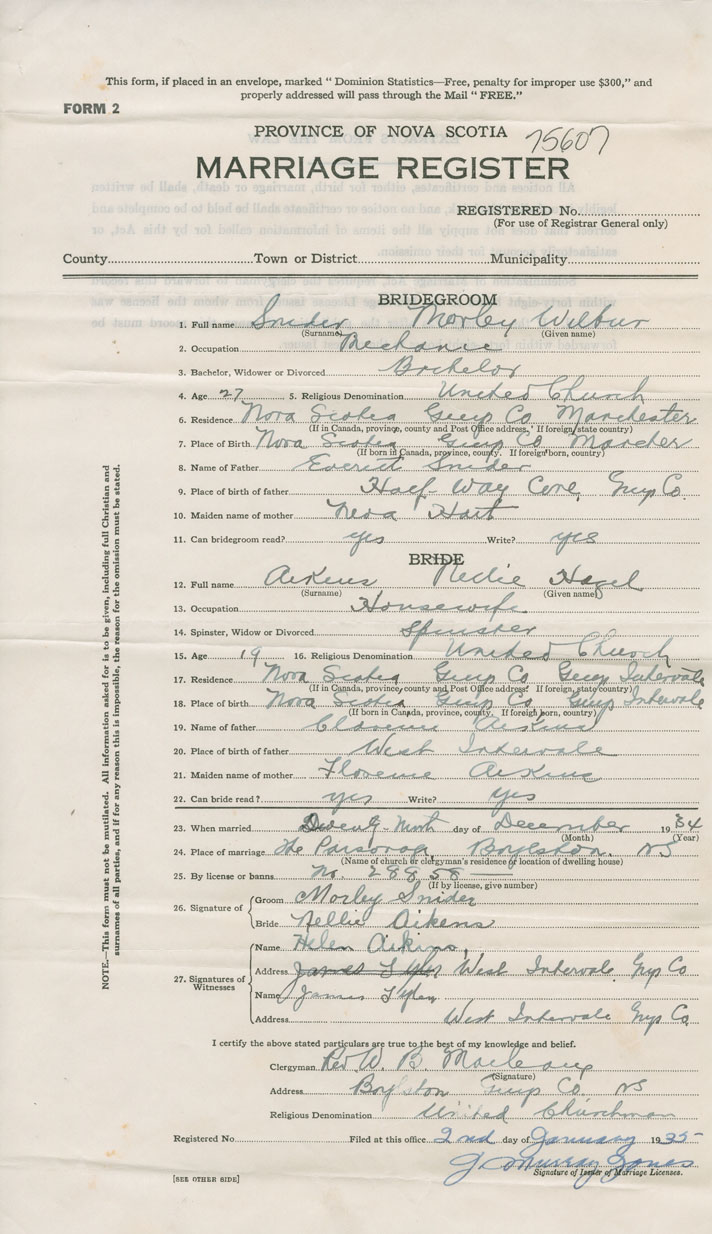 This form, if placed in an envelope, marked " Dominion Statistics—Free, penalty for improper use $300," and
properly addressed will pass through the Mail " FREE."
FORM 2
PROVINCE OF NOVA SCOTIA 75607
MARRIAGE REGISTER
REGISTERED No.
(For use of Registrar General only)
County Town or District Municipality
BRIDEGROOM
1. Full name Snider Morley Wilbur
(Surname) (Given name)
2. Occupation Mechanic
3. Bachelor, Widower or Divorced Bachelor
4. Age 27 5. Religious Denomination United Church
6. Residence Nova Scotia Guys Co Manchester
(If in Canada, province, county and Post Office address. If foreign, state country)
7. Place of Birth Nova Scotia Guys Co Manches
(If born in Canada, province, county. If foreign born, country)
8. Name of Father Everett Snider
9. Place of birth of father Half Way Cove, Guys Co.
10. Maiden name of mother Neva Hart
11. Can bridegroom read? yes Write? yes
BRIDE
12. Full name Aikins Nellie Hazel
(Surname) (Given name)
13. Occupation Housewife
14. Spinster, Widow or Divorced Spinster
15. Age 19 16. Religious Denomination United Church
17. Residence Nova Scotia Guys Co Guys Intervale
(If in Canada, province, county and Post Office address. If foreign, state country)
18. Place of Birth Nova Scotia Guys Co Guys Intervale
(If born in Canada, province, county. If foreign born, country)
19. Name of father Clarence Aikins
20. Place of birth of father West Intervale
21. Maiden name of mother Florence Aikins
22. Can bride read? yes Write? yes
23. When married day of December 1934
(Month) (Year)
24. Place of marriage The Parsonage Boylston. NS
(Name of church or clergyman's residence or location of dwelling house)
25. By license or banns No. 28858
(If by license, give number)
26. Signature of Groom Morley Snider
Bride Nellie Aikens
27. Signatures of Witnesses Name Helen Aikins,
Address James Tyler West Intervale Guys Co
Name James Tyler
Address West Intervale Guys Co.
I certify the above stated particulars are true to the best of my knowledge and belief.
Clergyman Rev W. B. MacLean
(Signature)
Address Boylston Guys Co. NS
Religious Denomination United Churchman
Registered No. Filed at this office 2nd day of January 1935
J Murray Jones
Signature of Issuer of Marriage Licenses.
[SEE OTHER SIDE]
NOTE.—This form must not be mutilated. All information asked for is to be given, including full Christian and
surnames of all parties, and if for any reason this is impossible, the reason for the omission must be stated.